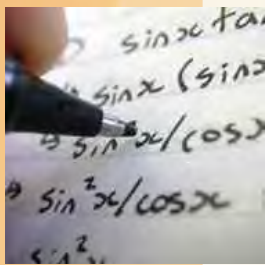 sinx ta
⇒ sinx (sinx
⇒ sin²x/cosx
⇒ sin²x/cosx
sin²x